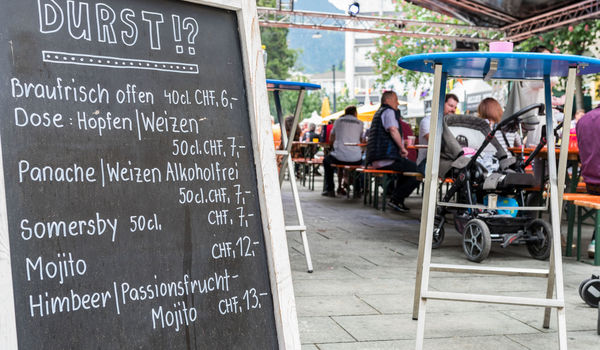 DURST !?
Braufrisch offen 40cl. CHF, 6,-
Dose : Hopfen|Weizen
50cl. CHF, 7,-
Panache|Weizen Alkoholfrei
50cl. CHF, 7,-
Somersby 50cl. CHF, 7,-
Mojito CHF, 12,-
Himbeer|Passionsfrucht-
Mojito CHF, 13,-